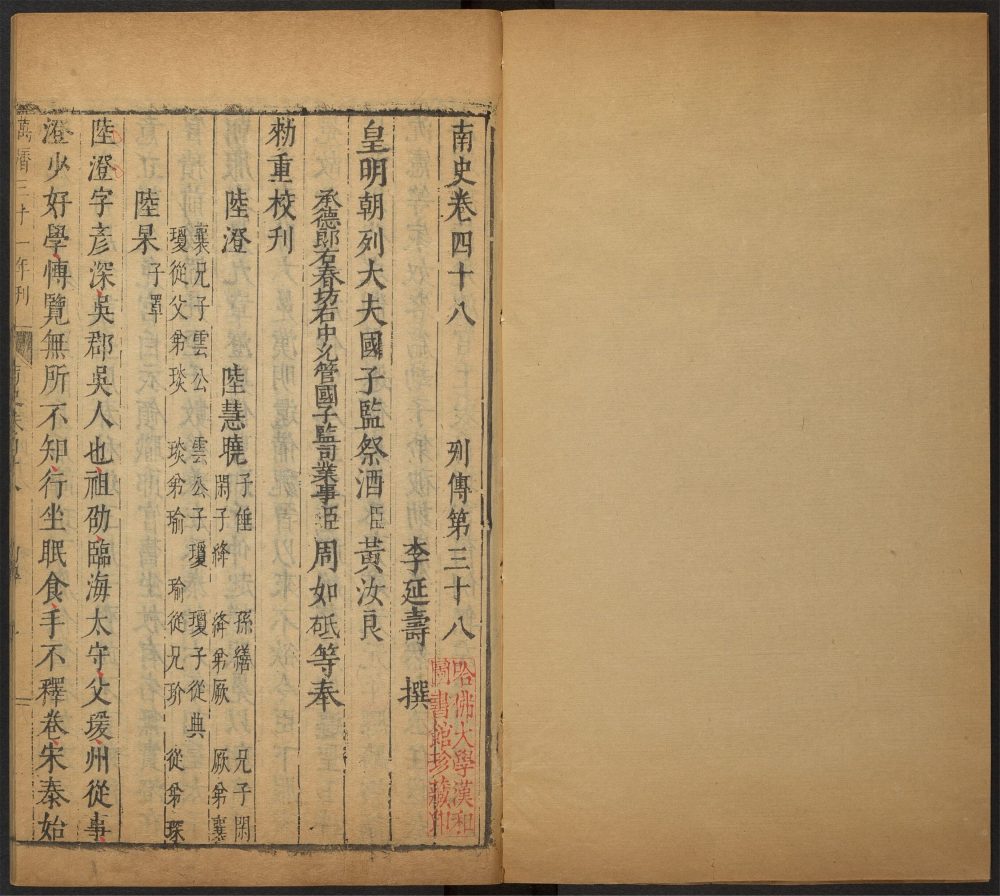 南史卷四十八　列傳第三十八
李延壽　撰
皇明朝列大夫國子監祭酒臣黃汝良
承德郎右春坊右中允管國子監司業事臣周如砥等奉
勑重校刊
陸澄　陸慧曉　子倕　孫繕　兄子閑
閑子絳　絳弟厥　厥弟襄
襄兄子雲公　雲公子瓊　瓊子從典
瓊從父弟琰　琰弟瑜　瑜從兄玠　從弟琛
陸杲　子罩
陸澄字彥深吳郡吳人也祖劭臨海太守父瑗州從事
澄少好學博覽無所不知行坐眠食手不釋卷宋泰始
萬曆三十一年刊
哈佛大學漢和
圖書館珍藏印